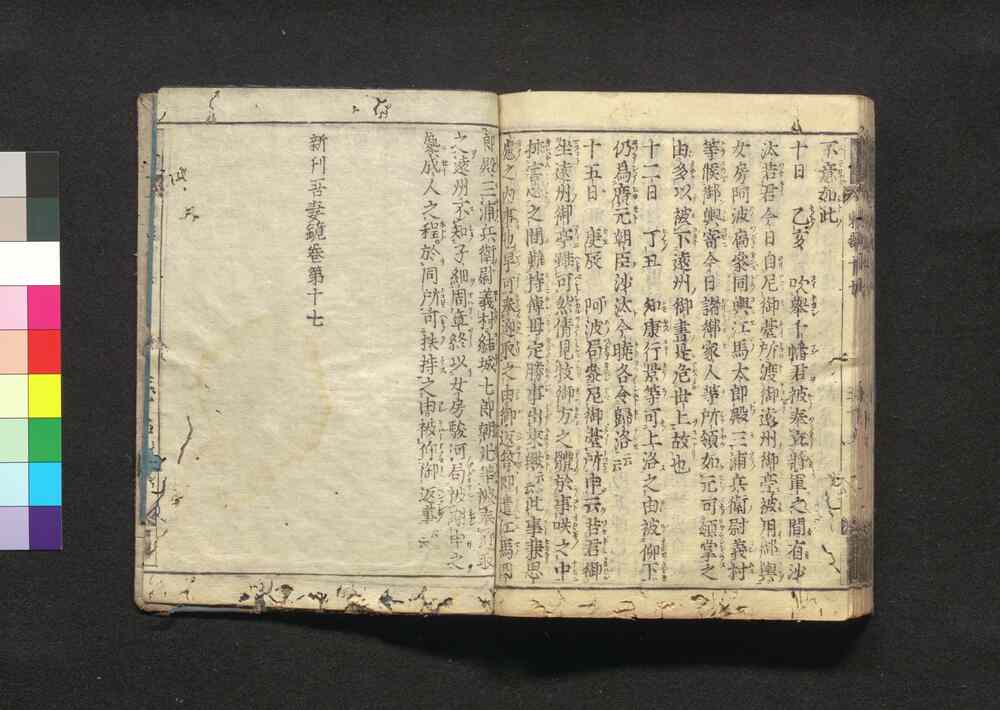 不意如此
十日 乙亥 吹擧千幡君被奉立將軍之間有沙
汰若君今日自尼御臺所渡御遠州御亭被用御輿
女房阿波局參同輿江馬太郎殿三浦兵衛尉義村
等候御輿寄今日諸御家人等所領如元可領掌之
由多以被下遠州御書是危世上故也
十二日 丁丑 知康行景等可上洛之由被仰下
仍爲廣元朝臣沙汰今曉各令歸洛云云
十五日 庚辰 阿波局參尼御臺所申云若君御
坐遠州御亭雖可然倩見牧御方之體於事咲之中
挾害心之間難恃傅母定勝事出來歟云云此事兼思
慮之内事也早可奉迎取之由御返答即遣江馬四
郎殿三浦兵衛尉義村結城七郎朝光等被奉迎取
之遠州不知子細周章終以女房駿河局被謝申之
處成人之程於同所可扶持之由被仰御返事云云
新刊吾妻鏡卷第十七